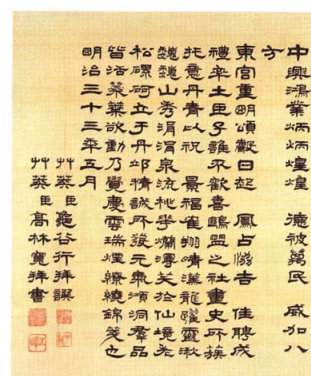 中興鴻業炳炳煌煌 德被萬民 威加八
方
東宮重明頌聲日起 鳳占協吉 佳聘成
禮率土臣子誰不歡喜鷗盟之社畫史所蔟
托意丹青以祝 景福隺翔晴漢龍躍靈湫
巍巍山秀涓涓泉流桃華爛漫笑於仙境老
松磥砢立于丹邱精誠所發元氣澒洞羣品
皆活葉葉欲動乃覺慶雲瑞煙繚繞錦箋也
明治三十三年五月
艸莽臣龜谷行拜撰
艸莽臣高林寬拜書